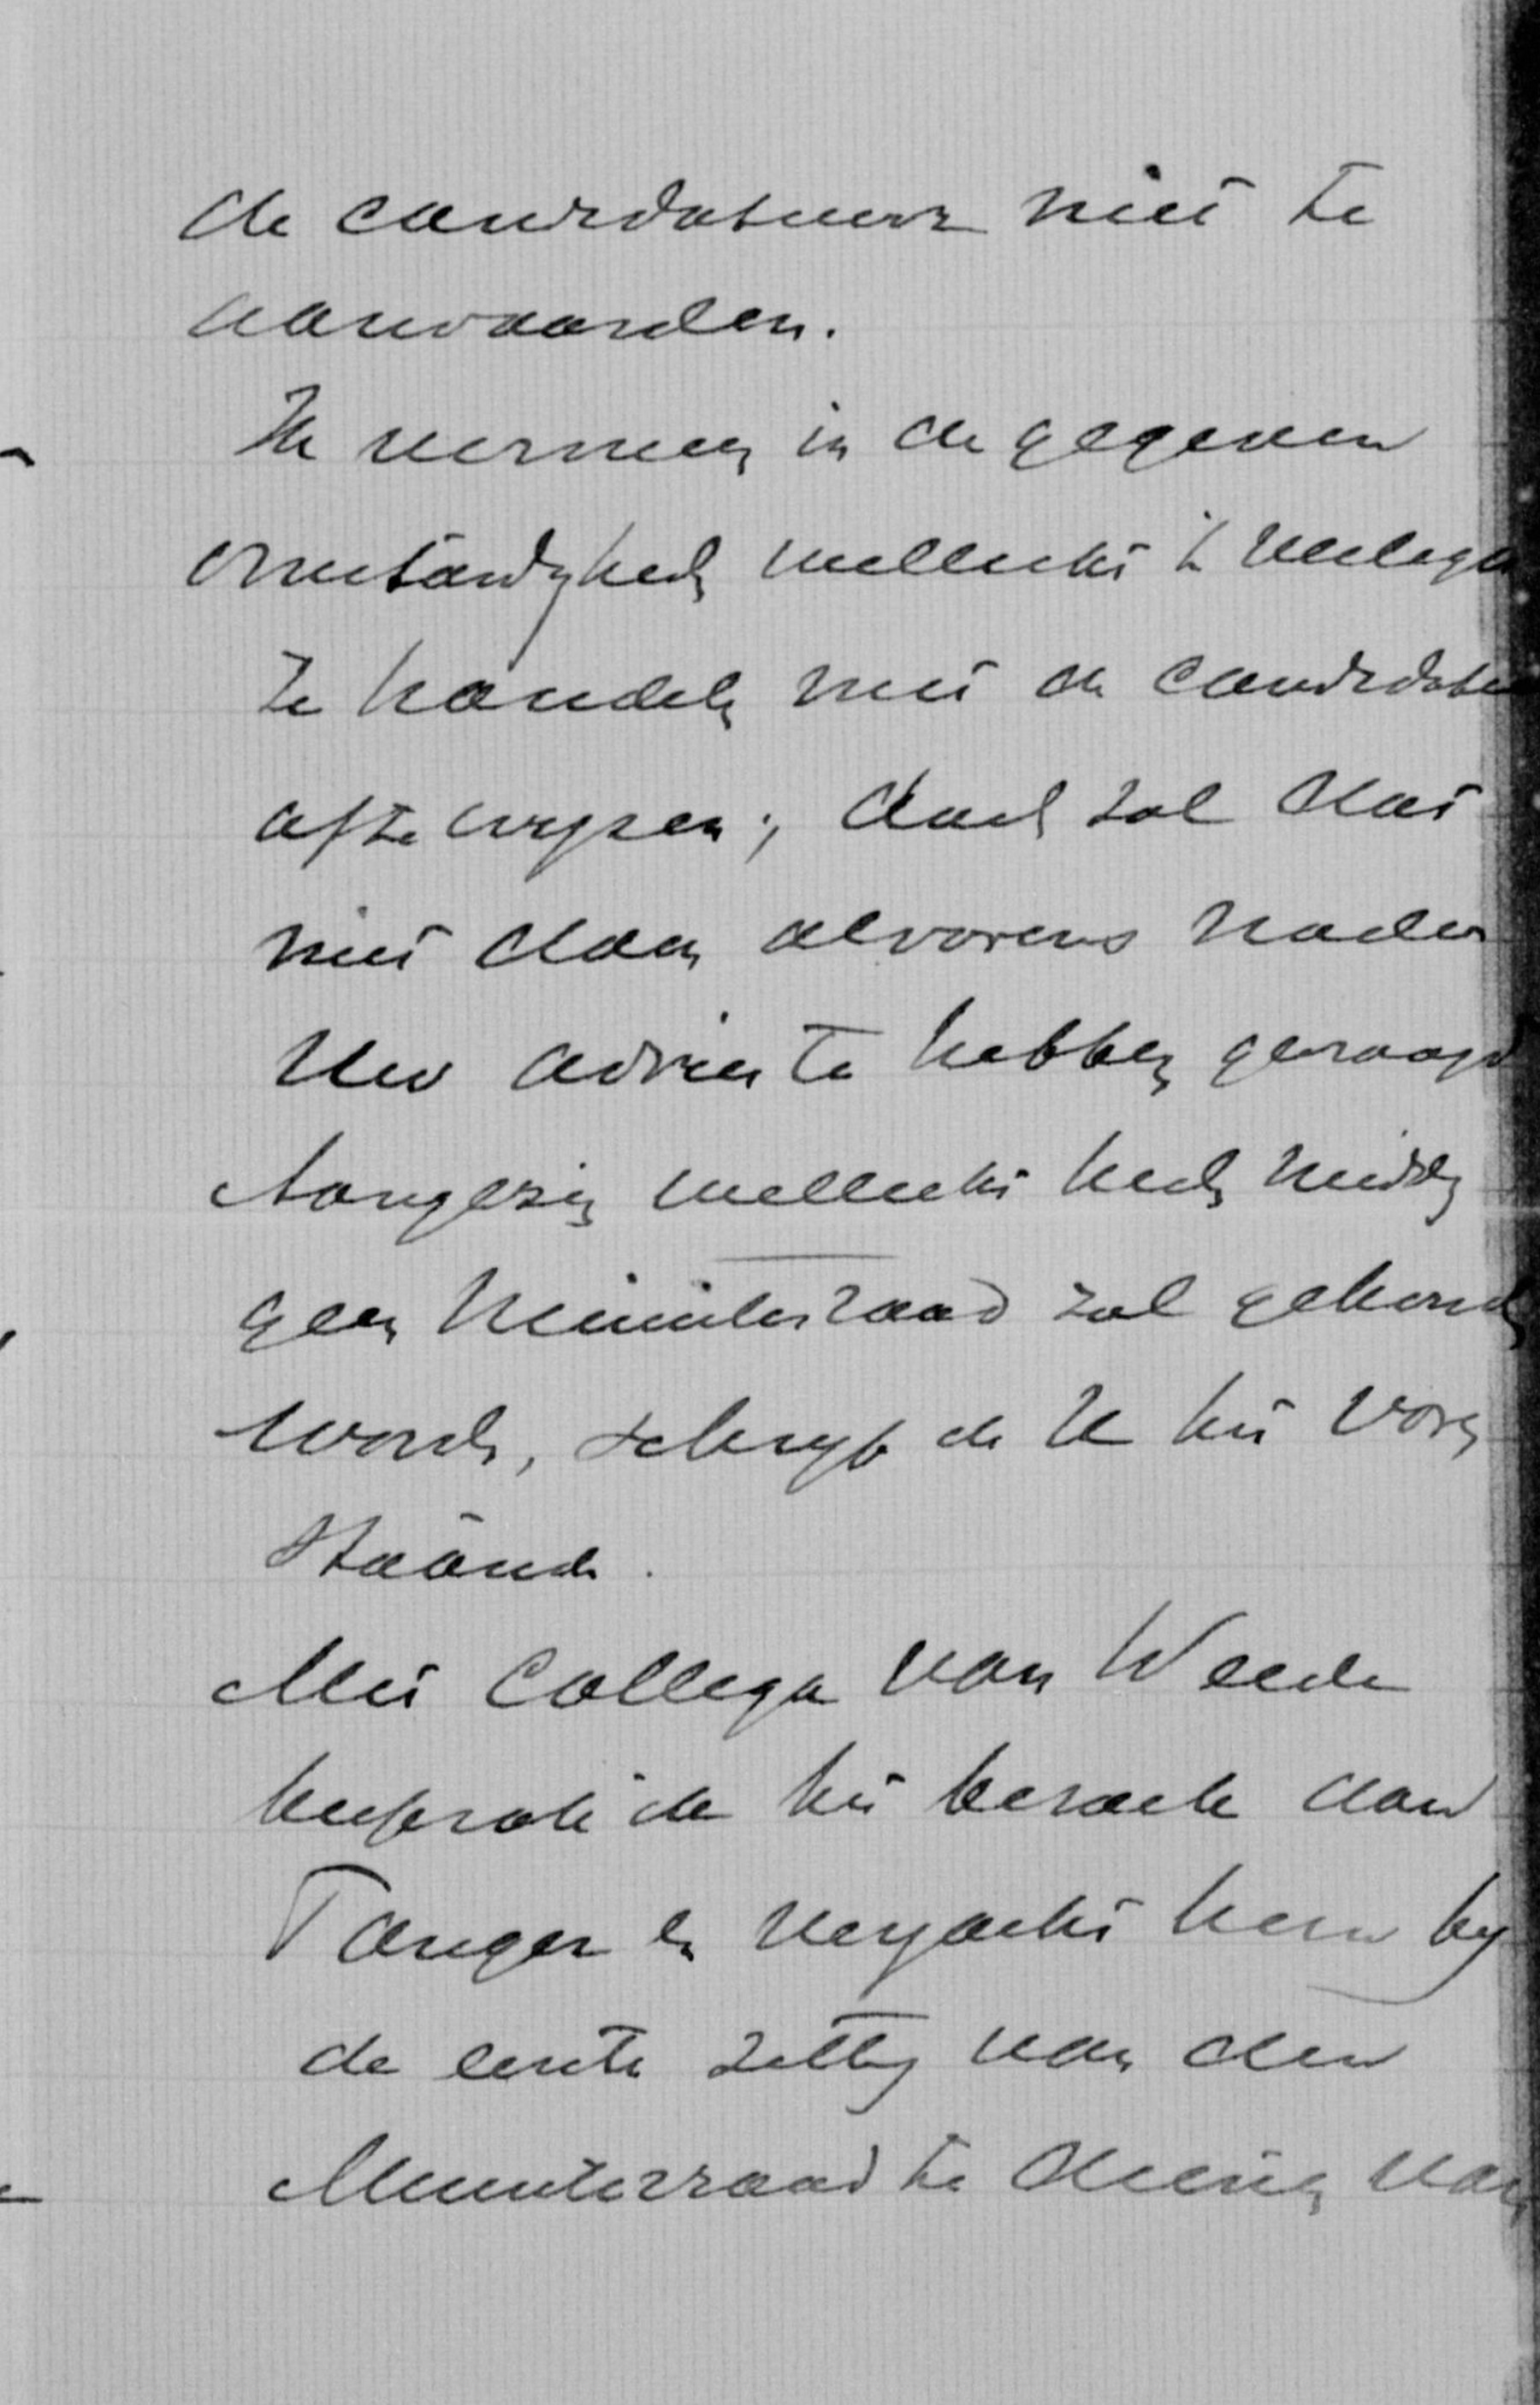 de candidatuur niet te
aanvaarden.
Ik vermeen in de gegeven
omstandigheden wellicht te
te handelen met de candidatuur
af te wijzen; doch zal dat
niet doen alvorens nader
Uw advies te hebben gevraagd
Aangezien wellicht heden middag
geen Ministerraad zal gehouden
worden, schryf ik U het voren
staande.
Met Collega van Weede
besprak ik het bezoek aan
Tanger en verzocht hem by
de eerste zitting van den
Ministerraad te van